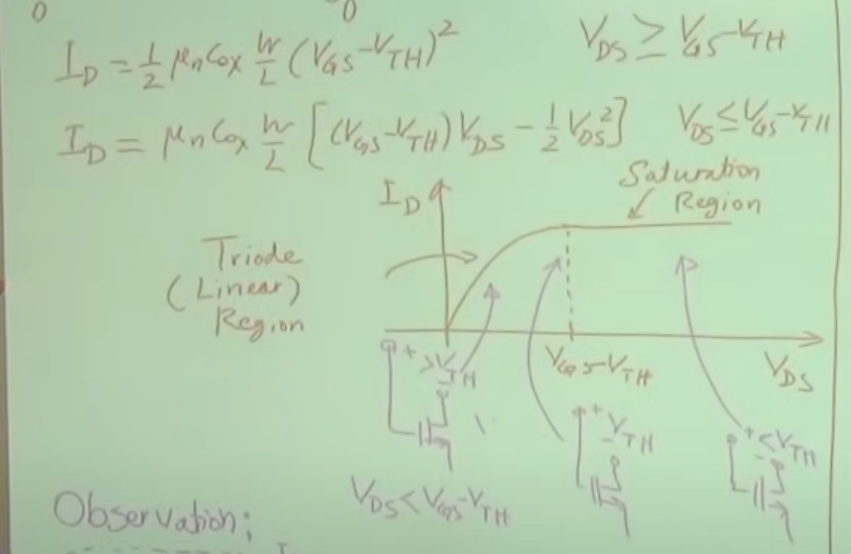 0 0
I_D = 1/2 μnCox W/L (V_GS - V_TH)^2   V_DS ≥ V_GS - V_TH
I_D = μnCox W/L [(V_GS - V_TH) V_DS - 1/2 V_DS^2]   V_DS ≤ V_GS - V_TH
Saturation
Region
I_D
Triode
(Linear)
Region
V_GS - V_TH
V_DS
+ > V_TH -
+ V_TH -
+ < V_TH -
V_DS < V_GS - V_TH
Observation: